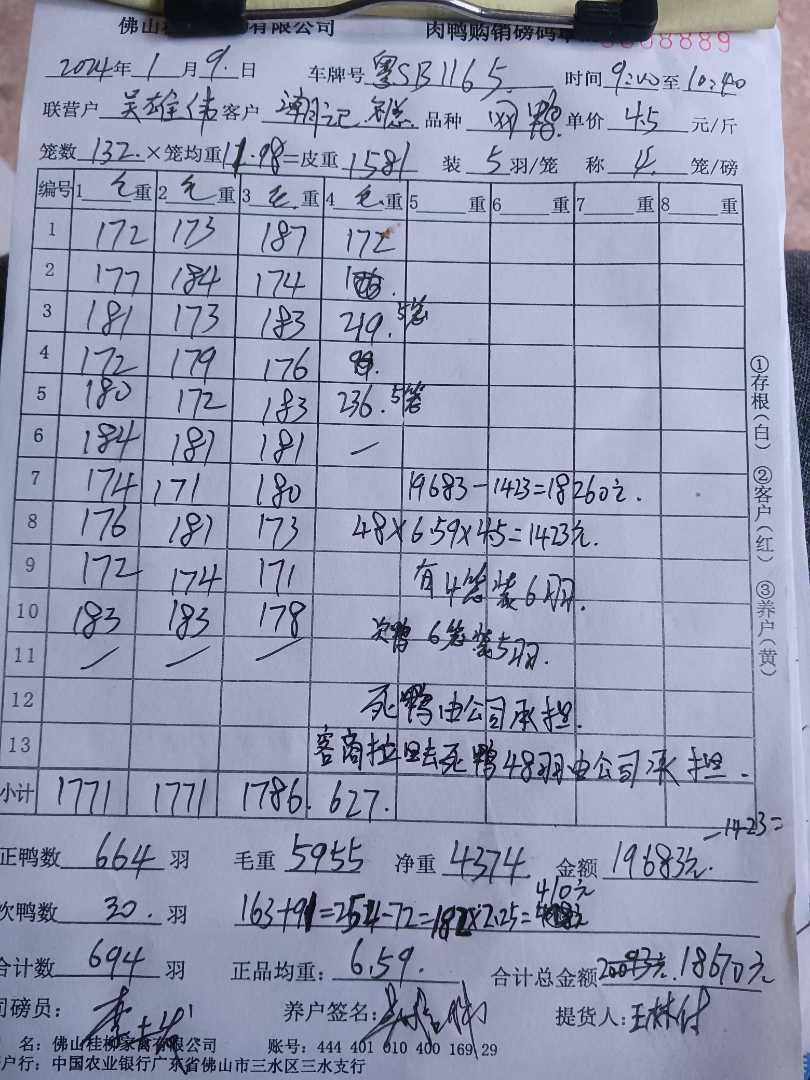 佛山桂 有限公司 肉鸭购销磅码单 0008889
2024年1月9日 车牌号粤SB1165 时间9:00至10:40
联营户 吴雄伟 客户 品种 单价 4.5 元/斤
笼数132×笼均重11.98=皮重1581 装5羽/笼 称4笼/磅
编号 1毛重 2毛重 3毛重 4毛重 5 重 6 重 7 重 8 重
1 172 173 187 172
2 177 184 174
3 181 173 183 219. 5笼
4 172 179 176
5 180 172 183 236. 5笼
6 184 181 181 —
7 174 171 180 19683-1423=18260元.
8 176 181 173 48×6.59×4.5=1423元.
9 172 174 171 有4笼装6羽.
10 183 183 178 次鸭6笼装5羽.
11 — — —
12 死鸭由公司承担.
13 客商拉回去死鸭48羽由公司承担.
小计 1771 1771 1786. 627.
-1423=
正鸭数 664 羽 毛重 5955 净重 4374 金额 19683元.
410元
次鸭数 30. 羽 163+91=254-72=182×2.25=
合计数 694 羽 正品均重: 6.59. 合计总金额 18670元
司磅员: 养户签名: 提货人:
名: 佛山桂柳家禽有限公司 账号: 444 401 010 400 169 29
户行: 中国农业银行广东省佛山市三水区三水支行
①存根(白) ②客户(红) ③养户(黄)